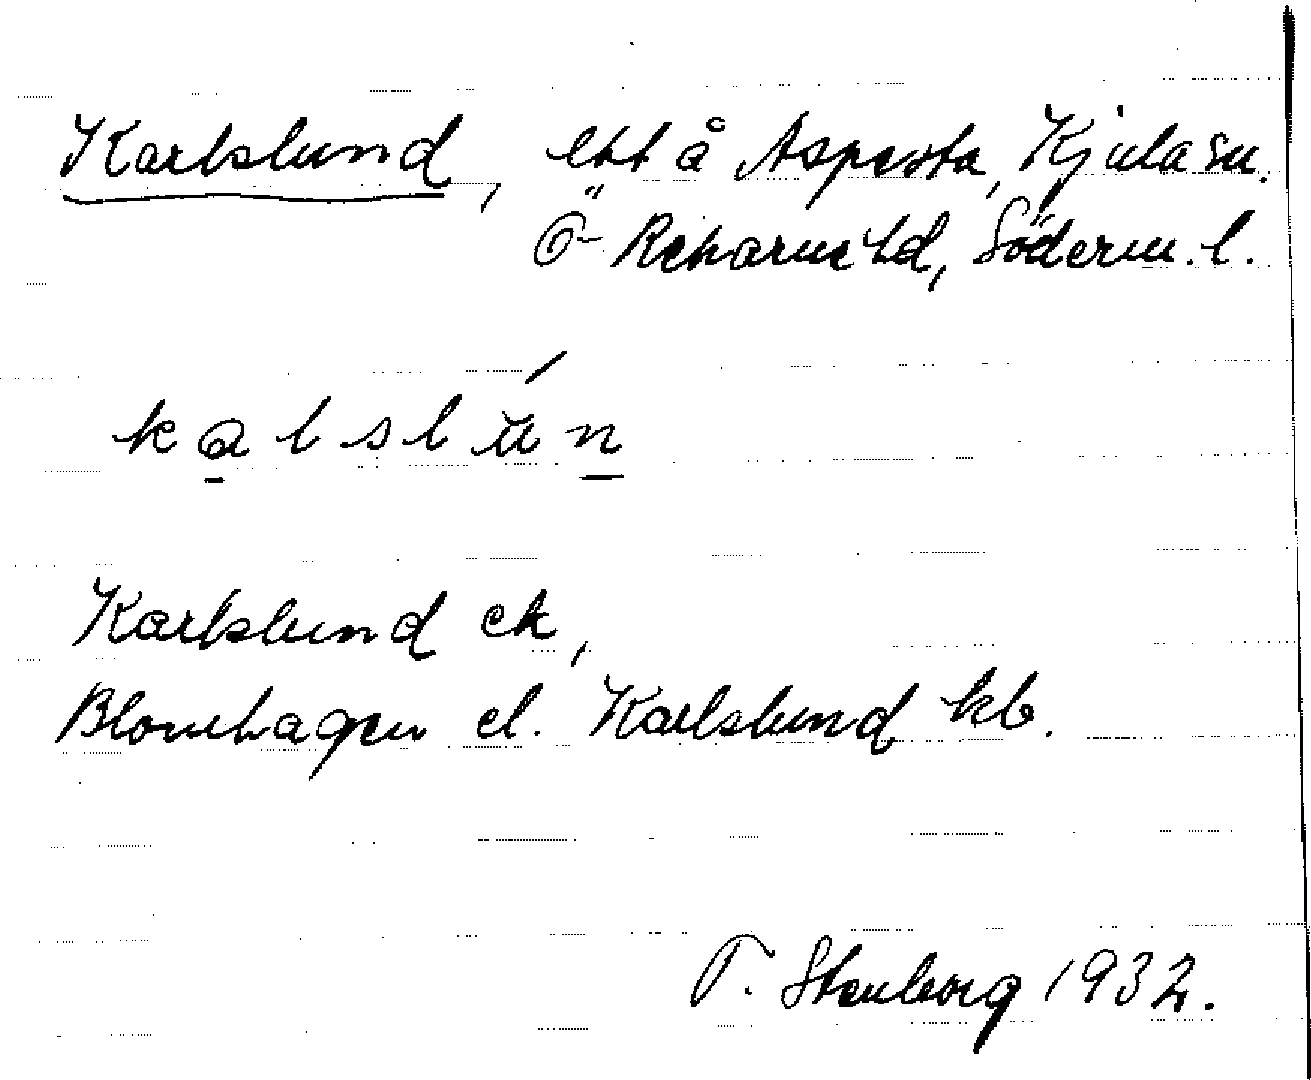 Karlslund, ett å Aspesta, Kjula sn.
Ö-Rekarne hd, Söderm. l.
kalslun
Karlslund ek,
Blomhagen el. Karlslund kb.
T. Stenborg 1932.